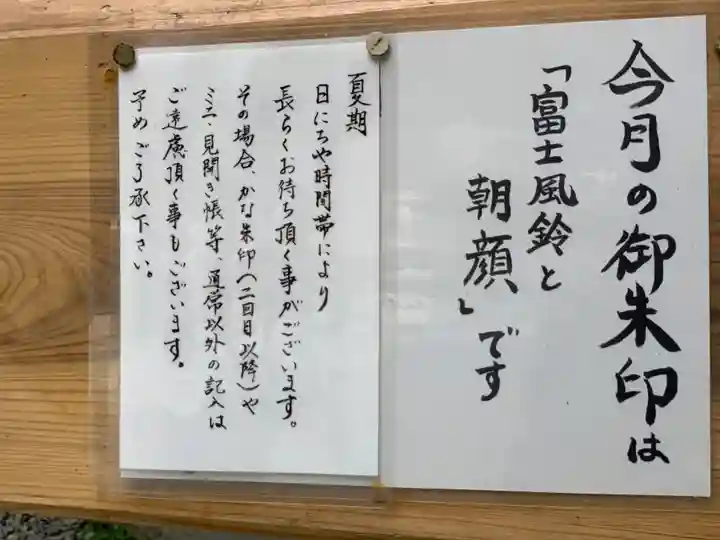 今月の御朱印は
「富士風鈴と
朝顔」です
夏期
日にちや時間帯により
長らくお待ち頂く事がございます。
その場合、かな朱印(二回目以降)や
ミニ、見開き帳等、通常以外の記入は
ご遠慮頂く事もございます。
予めご了承下さい。